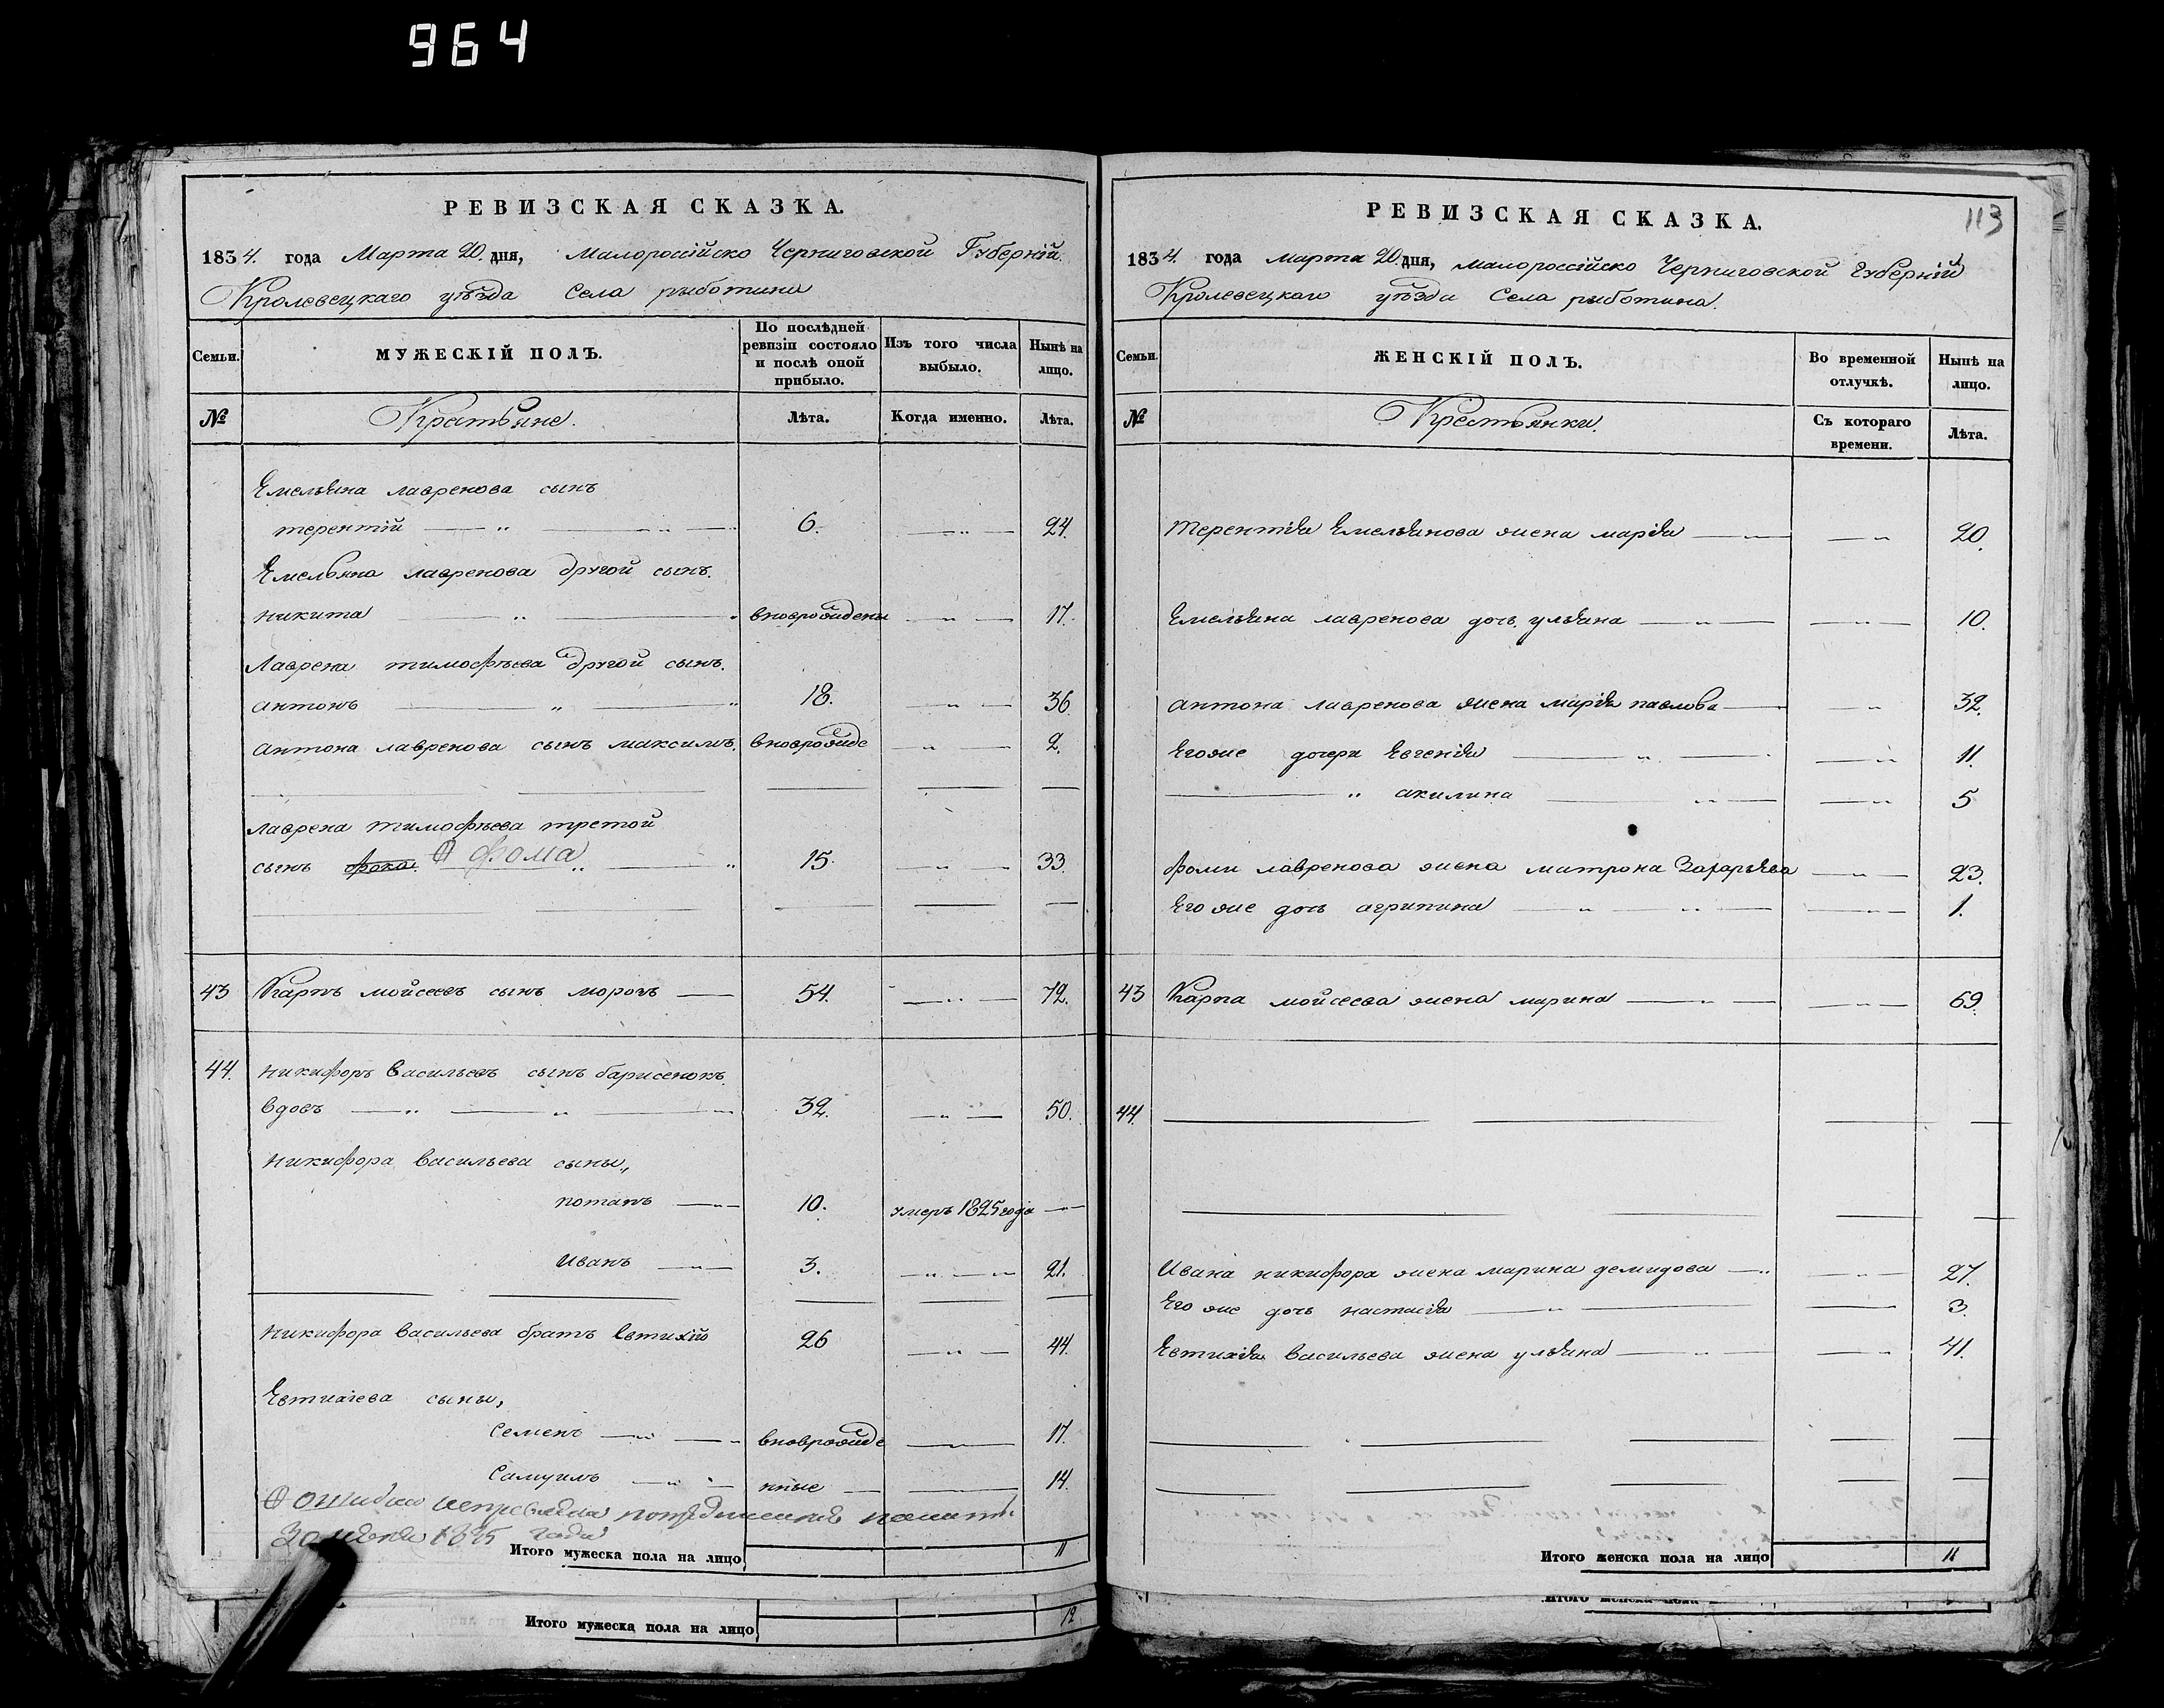 964
РЕВИЗСКАЯ СКАЗКА.
1834. года Марта 20. дня, Малороссійско Черниговской Губерній
Кролевецкаго уѣзда Села рыботина
Семьи. МУЖЕСКІЙ ПОЛЪ. По послѣдней ревизіи состояло и послѣ оной прибыло. Изъ того числа выбыло. Нынѣ на лицо.
№ Крестьяне. Лѣта. Когда именно. Лѣта.
Емельяна лавренова сынъ
терентій 6. 24.
Емельяна лавренова другой сынъ.
никита вноврождены 17.
Лаврена тимофѣева другой сынъ.
антонъ 18. 36
антона лавренова сынъ максимъ. вноврожде 2.
лаврена тимофѣева третой
сынъ фока. фома 15. 33.
43 Карпъ мойсеевъ сынъ морозъ 54. 72.
44. никифоръ васильевъ сынъ барисенокъ.
вдовъ 32. 50.
никифора васильева сыны,
потапъ 10. умеръ 1825 года
иванъ 3. 21.
никифора васильева братъ евтихій 26 44.
Евтихіева сыны,
семенъ вноврожде 17.
самуилъ нные 14.
ошибка
1835 года
Итого мужеска пола на лицо 11
Итого мужеска пола на лицо 12
113
РЕВИЗСКАЯ СКАЗКА.
1834. года марта 20 дня, малороссійско Черниговской Губерній
Кролевецкаго уѣзда Села рыботина.
Семьи. ЖЕНСКІЙ ПОЛЪ. Во временной отлучкѣ. Нынѣ на лицо.
№ Крестьянки. Съ котораго времени. Лѣта.
Терентія Емельянова жена марія 20.
Емельяна лавренова дочь ульяна 10.
антона лавренова жена марія павлова 32.
Егоже дочери Евгенія 11.
акилина 5
фомы лавренова жена матрона Захарьева 23.
Его же дочь агрипина 1.
43 Карпа мойсеева жена марина 69.
44.
Ивана никифора жена марина демидова 27.
Его же дочь настасія 3.
Евтихія васильева жена ульяна 41.
Итого женска пола на лицо 11
Итого женска пола